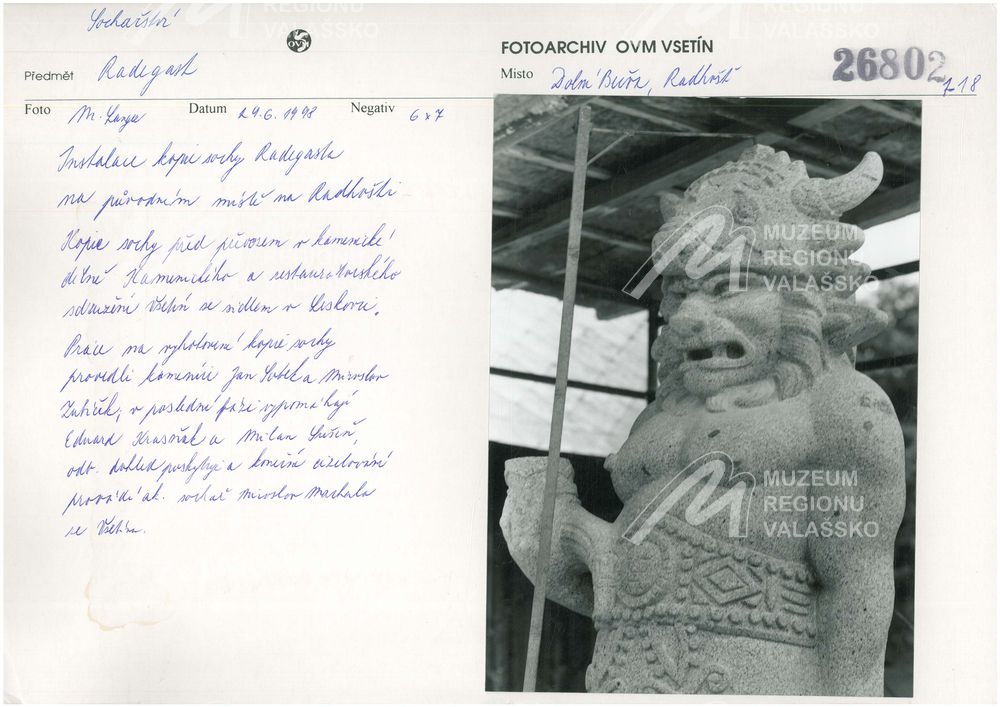 Sochařství
OVM
FOTOARCHIV OVM VSETÍN
26802
Předmět Radegast
Místo Dolní Bečva, Radhošť
1-18
Foto M. Langer Datum 29.6.1998 Negativ 6x7
Instalace kopie sochy Radegasta
na původním místě na Radhošti
Kopie sochy před převozem v kamenické
dílně Kamenického a restaurátorského
sdružení Vsetín se sídlem v Leskovci.
Práce na vyhotovení kopie sochy
provedli kameníci Jan Sobek a Miroslav
Zubíček, v poslední fázi vypomáhají
Eduard Krasňák a Milan
odb. dohled poskytuje a konečné cizelování
provádí ak. sochař Miroslav Machala
ze Vsetína.
MUZEUM
REGIONU
VALAŠSKO
MUZEUM
REGIONU
VALAŠSKO
REGIONU
VALAŠSKO
REGIONU
VALAŠSKO